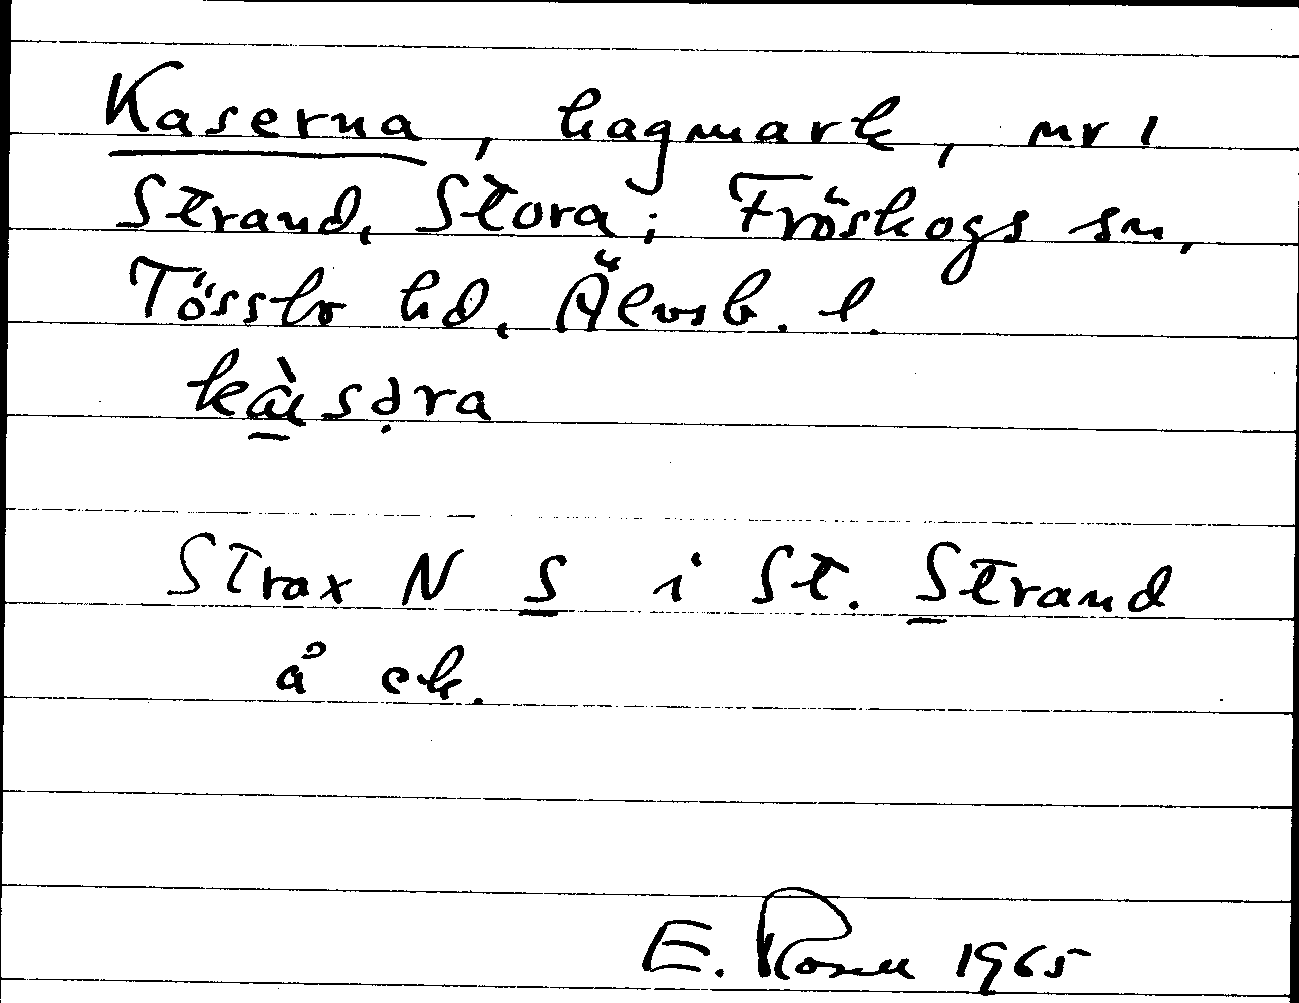 Kaserna, hagmark, nr 1
Strand, Stora; Fröskogs sn,
Tössbo hd, Älvsb. l.
kàsəra
Strax N S i St. Strand
å ek.
E. Rosell 1965